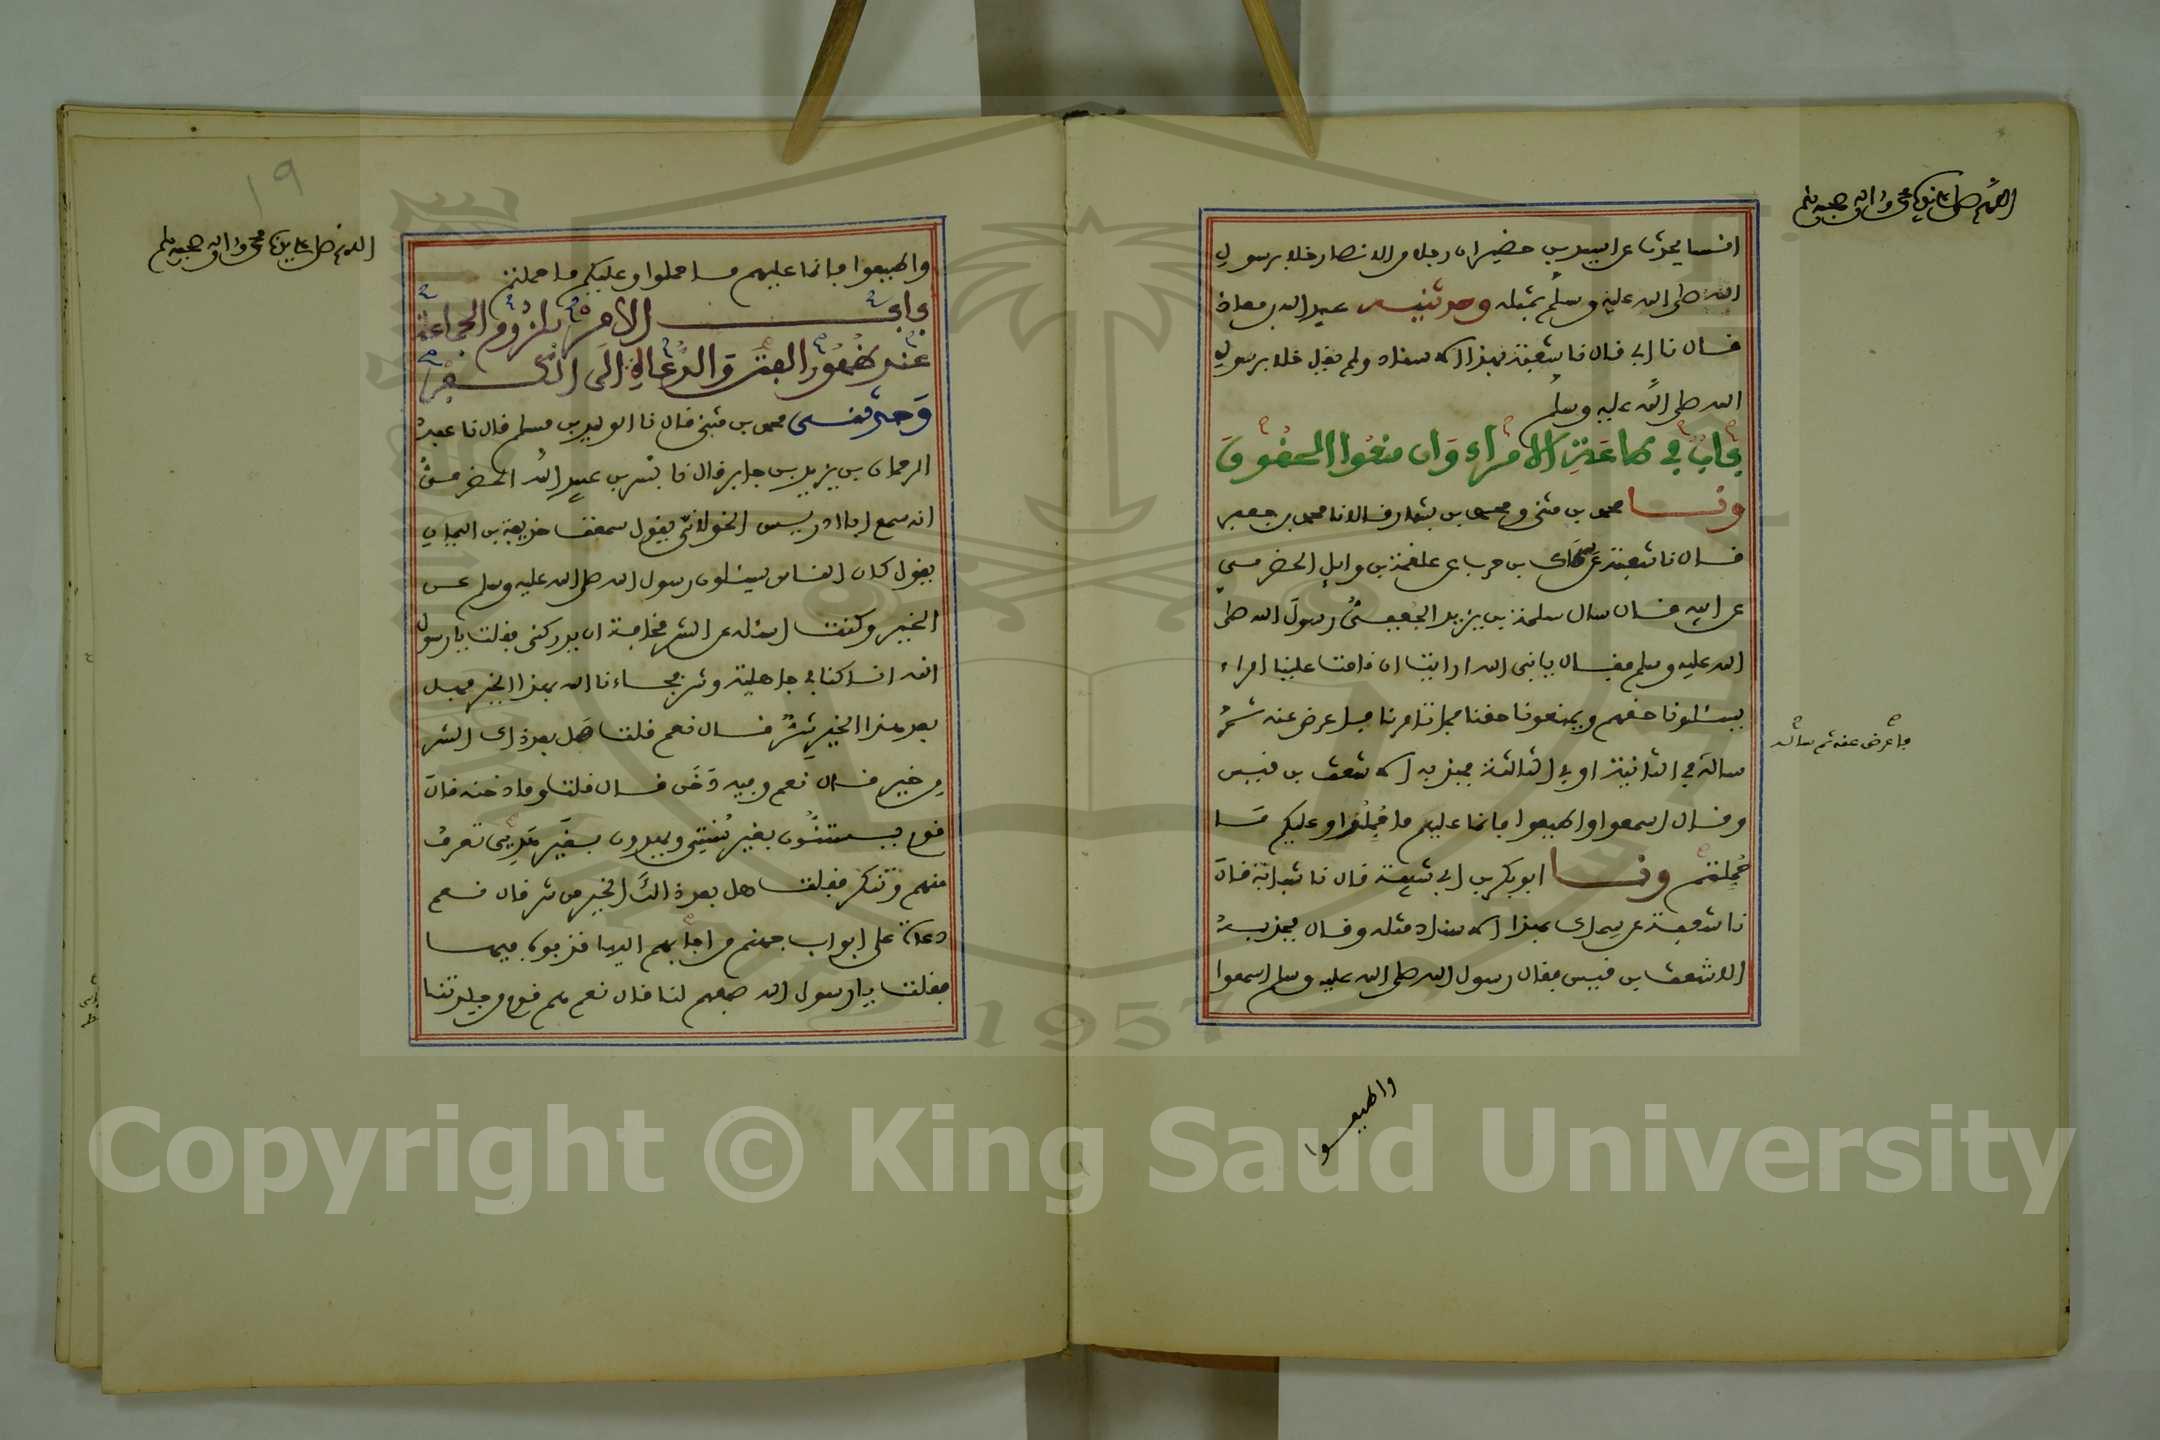 اللهم صل على نبيك محمد وءاله وصحبه وسلم
انسا يحدث عن اسيد بن حضير ان رجلا من الانصار خلا برسول
الله صلى الله عليه وسلم بمثله وحدثنيه عبيد الله بن معاذ
قال نا ابي قال نا شعبة بهذا الاسناد ولم يقل خلا برسول
الله صلى الله عليه وسلم
باب في طاعة الامراء وان منعوا الحقوق
ونا محمد بن مثنى ومحمد بن بشار قالا نا محمد بن جعفر
قال نا شعبة عن سماك بن حرب عن علقمة بن وايل الحضرمي
عن ابيه قال سال سلمة بن يزيد الجعفي رسول الله صلى
الله عليه وسلم فقال يا نبي الله ارايت ان قامت علينا امراء
يسئلونا حقهم ويمنعونا حقنا فما تامرنا فاعرض عنه ثم
ساله في الثانية او في الثالثة فجذبه الاشعث بن قيس
وقال اسمعوا واطيعوا فانما عليهم ما حملوا وعليكم ما
حملتم ونا ابو بكر بن ابي شيبة قال نا شبابة قال
نا شعبة عن سماك بهذا الاسناد مثله وقال فجذبه
الاشعث بن قيس فقال رسول الله صلى الله عليه وسلم اسمعوا
فاعرض عنه ثم ساله
واطيعوا
١٩
اللهم صل على نبيك محمد وءاله وصحبه وسلم
واطيعوا فانما عليهم ما حملوا وعليكم ما حملتم
باب الامر بلزوم الجماعة
عند ظهور الفتن والدعاة الى الكفر
وحدثنى محمد بن مثنى قال نا الوليد بن مسلم قال نا عبد
الرحمان بن يزيد بن جابر قال نا بسر بن عبيد الله الحضرمي
انه سمع ابا ادريس الخولاني يقول سمعت حذيفة بن اليمان
يقول كان الناس يسئلون رسول الله صلى الله عليه وسلم عن
الخير وكنت اسئله عن الشر مخافة ان يدركني فقلت يا رسول
الله انا كنا في جاهلية وشر فجاءنا الله بهذا الخير فهل
بعد هذا الخير شر قال نعم قلت هل بعد ذاك الشر
من خير قال نعم وفيه دخن قال قلت وما دخنه قال
قوم يستنون بغير سنتي ويهدون بغير هديي تعرف
منهم وتنكر فقلت هل بعد ذالك الخير من شر قال نعم
دعاة على ابواب جهنم من اجابهم اليها قذبوه فيها
فقلت يا رسول الله صفهم لنا قال نعم هم قوم من جلدتنا
1957
Copyright © King Saud University